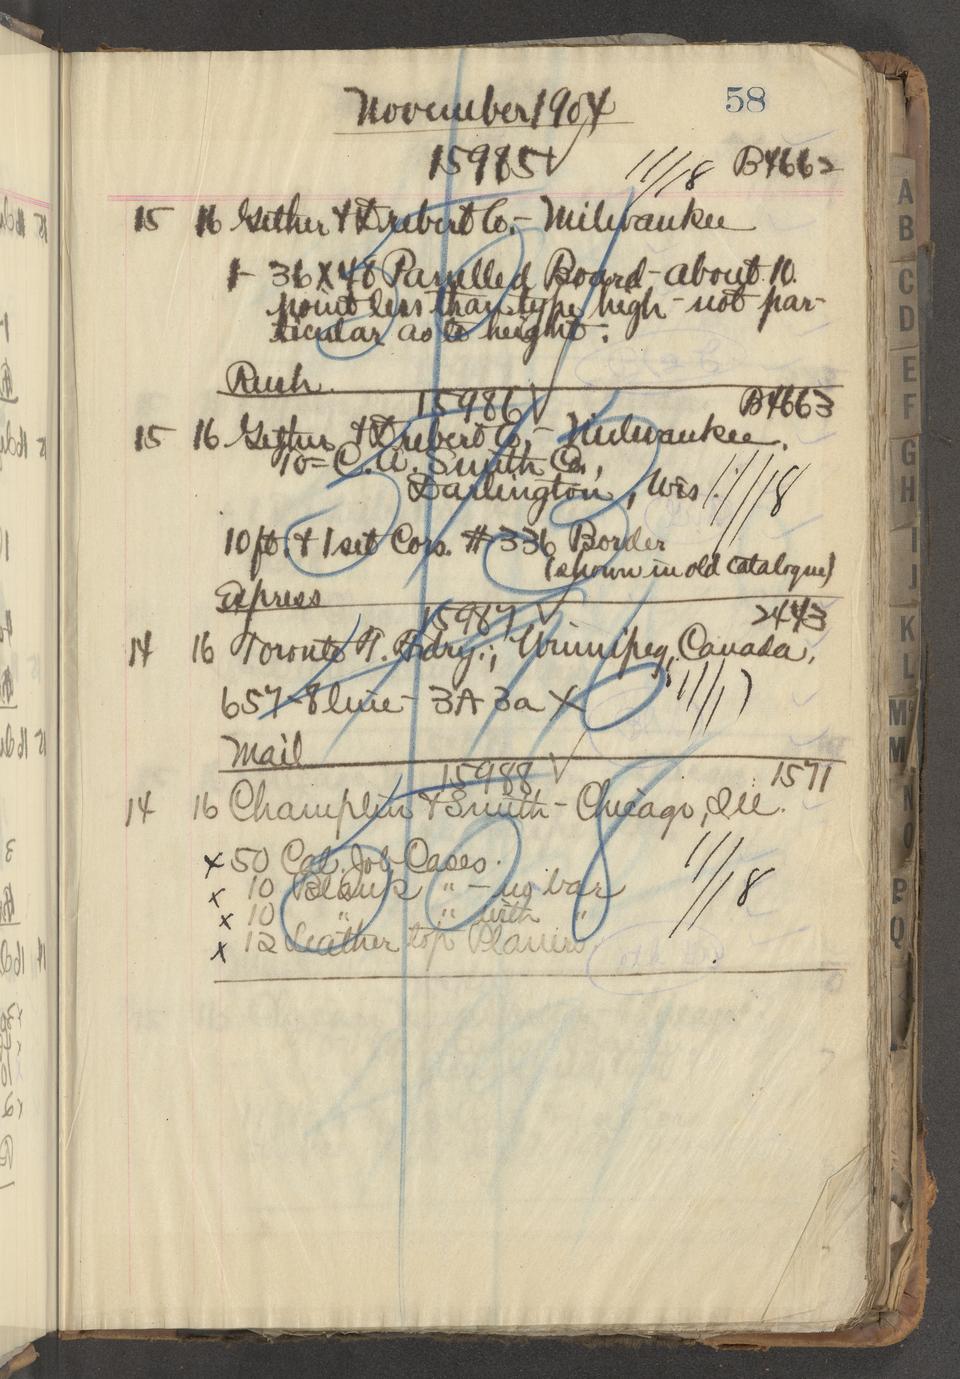 November 1904
58
15985 √
11/18
B4662
15 16 Gether & Drebert Co. - Milwaukee
1 - 36 X 48 Panelled Board - about 10
point less than type high - not par-
ticular as to height.
Rush
15986 √
B4663
15 16 Gether & Drebert Co. - Milwaukee.
To = C.A. Smith Co.,
Darlington, Wis.
11/18
10 ft. & 1 set Cors. #336 Border
(shown in old catalogue)
Express
15987 √
2443
14 16 Toronto T. Fdry.; Winnipeg, Canada.
657 - 8 line - 3A 3a X
11/17
Mail
15988 √
1571
14 16 Champlin & Smith - Chicago, Ill.
x 50 Cal. Job Cases.
x 10 Blank " - no bar
x 10 " " with "
x 12 Leather top Planers.
11/18
A
B
C
D
E
F
G
H
I
J
K
L
Mc
M
N
O
P
Q